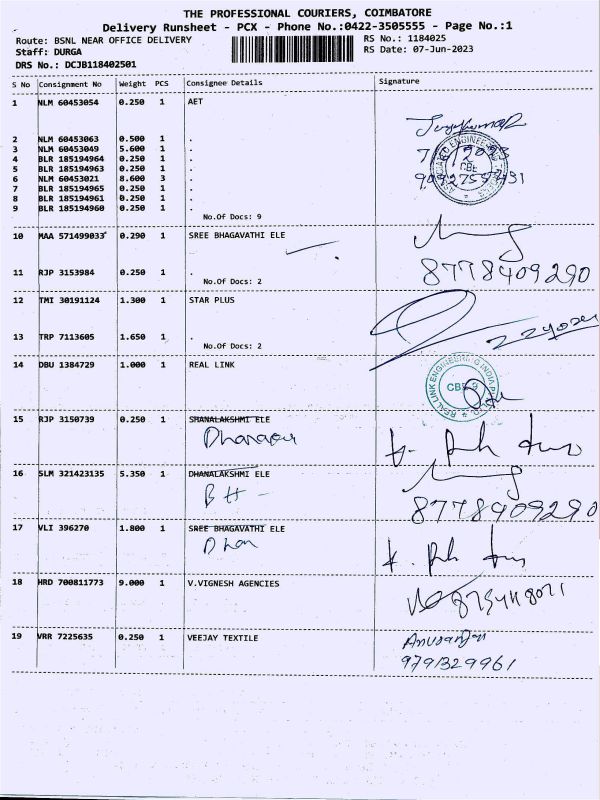 THE PROFESSIONAL COURIERS, COIMBATORE
Delivery Runsheet - PCX - Phone No.:0422-3505555 - Page No.:1
Route: BSNL NEAR OFFICE DELIVERY RS No.: 1184025
Staff: DURGA RS Date: 07-Jun-2023
DRS No.: DCJB118402501
S No Consignment No Weight PCS Consignee Details Signature
1 NLM 60453054 0.250 1 AET
2 NLM 60453063 0.500 1 .
3 NLM 60453049 5.600 1 .
4 BLR 185194964 0.250 1 .
5 BLR 185194963 0.250 1 .
6 NLM 60453021 8.600 3 .
7 BLR 185194965 0.250 1 .
8 BLR 185194961 0.250 1 .
9 BLR 185194960 0.250 1 .
No.Of Docs: 9
CBE
10 MAA 571499033 0.290 1 SREE BHAGAVATHI ELE
8778409290
11 RJP 3153984 0.250 1 .
No.Of Docs: 2
12 TMI 30191124 1.300 1 STAR PLUS
13 TRP 7113605 1.650 1 .
No.Of Docs: 2
14 DBU 1384729 1.000 1 REAL LINK
REAL LINK ENGINEERING INDIA
15 RJP 3150739 0.250 1 DHANALAKSHMI ELE
16 SLM 321423135 5.350 1 DHANALAKSHMI ELE
BH -
8778409290
17 VLI 396270 1.800 1 SREE BHAGAVATHI ELE
Dhan
18 HRD 700811773 9.000 1 V.VIGNESH AGENCIES
19 VRR 7225635 0.250 1 VEEJAY TEXTILE
9791329961